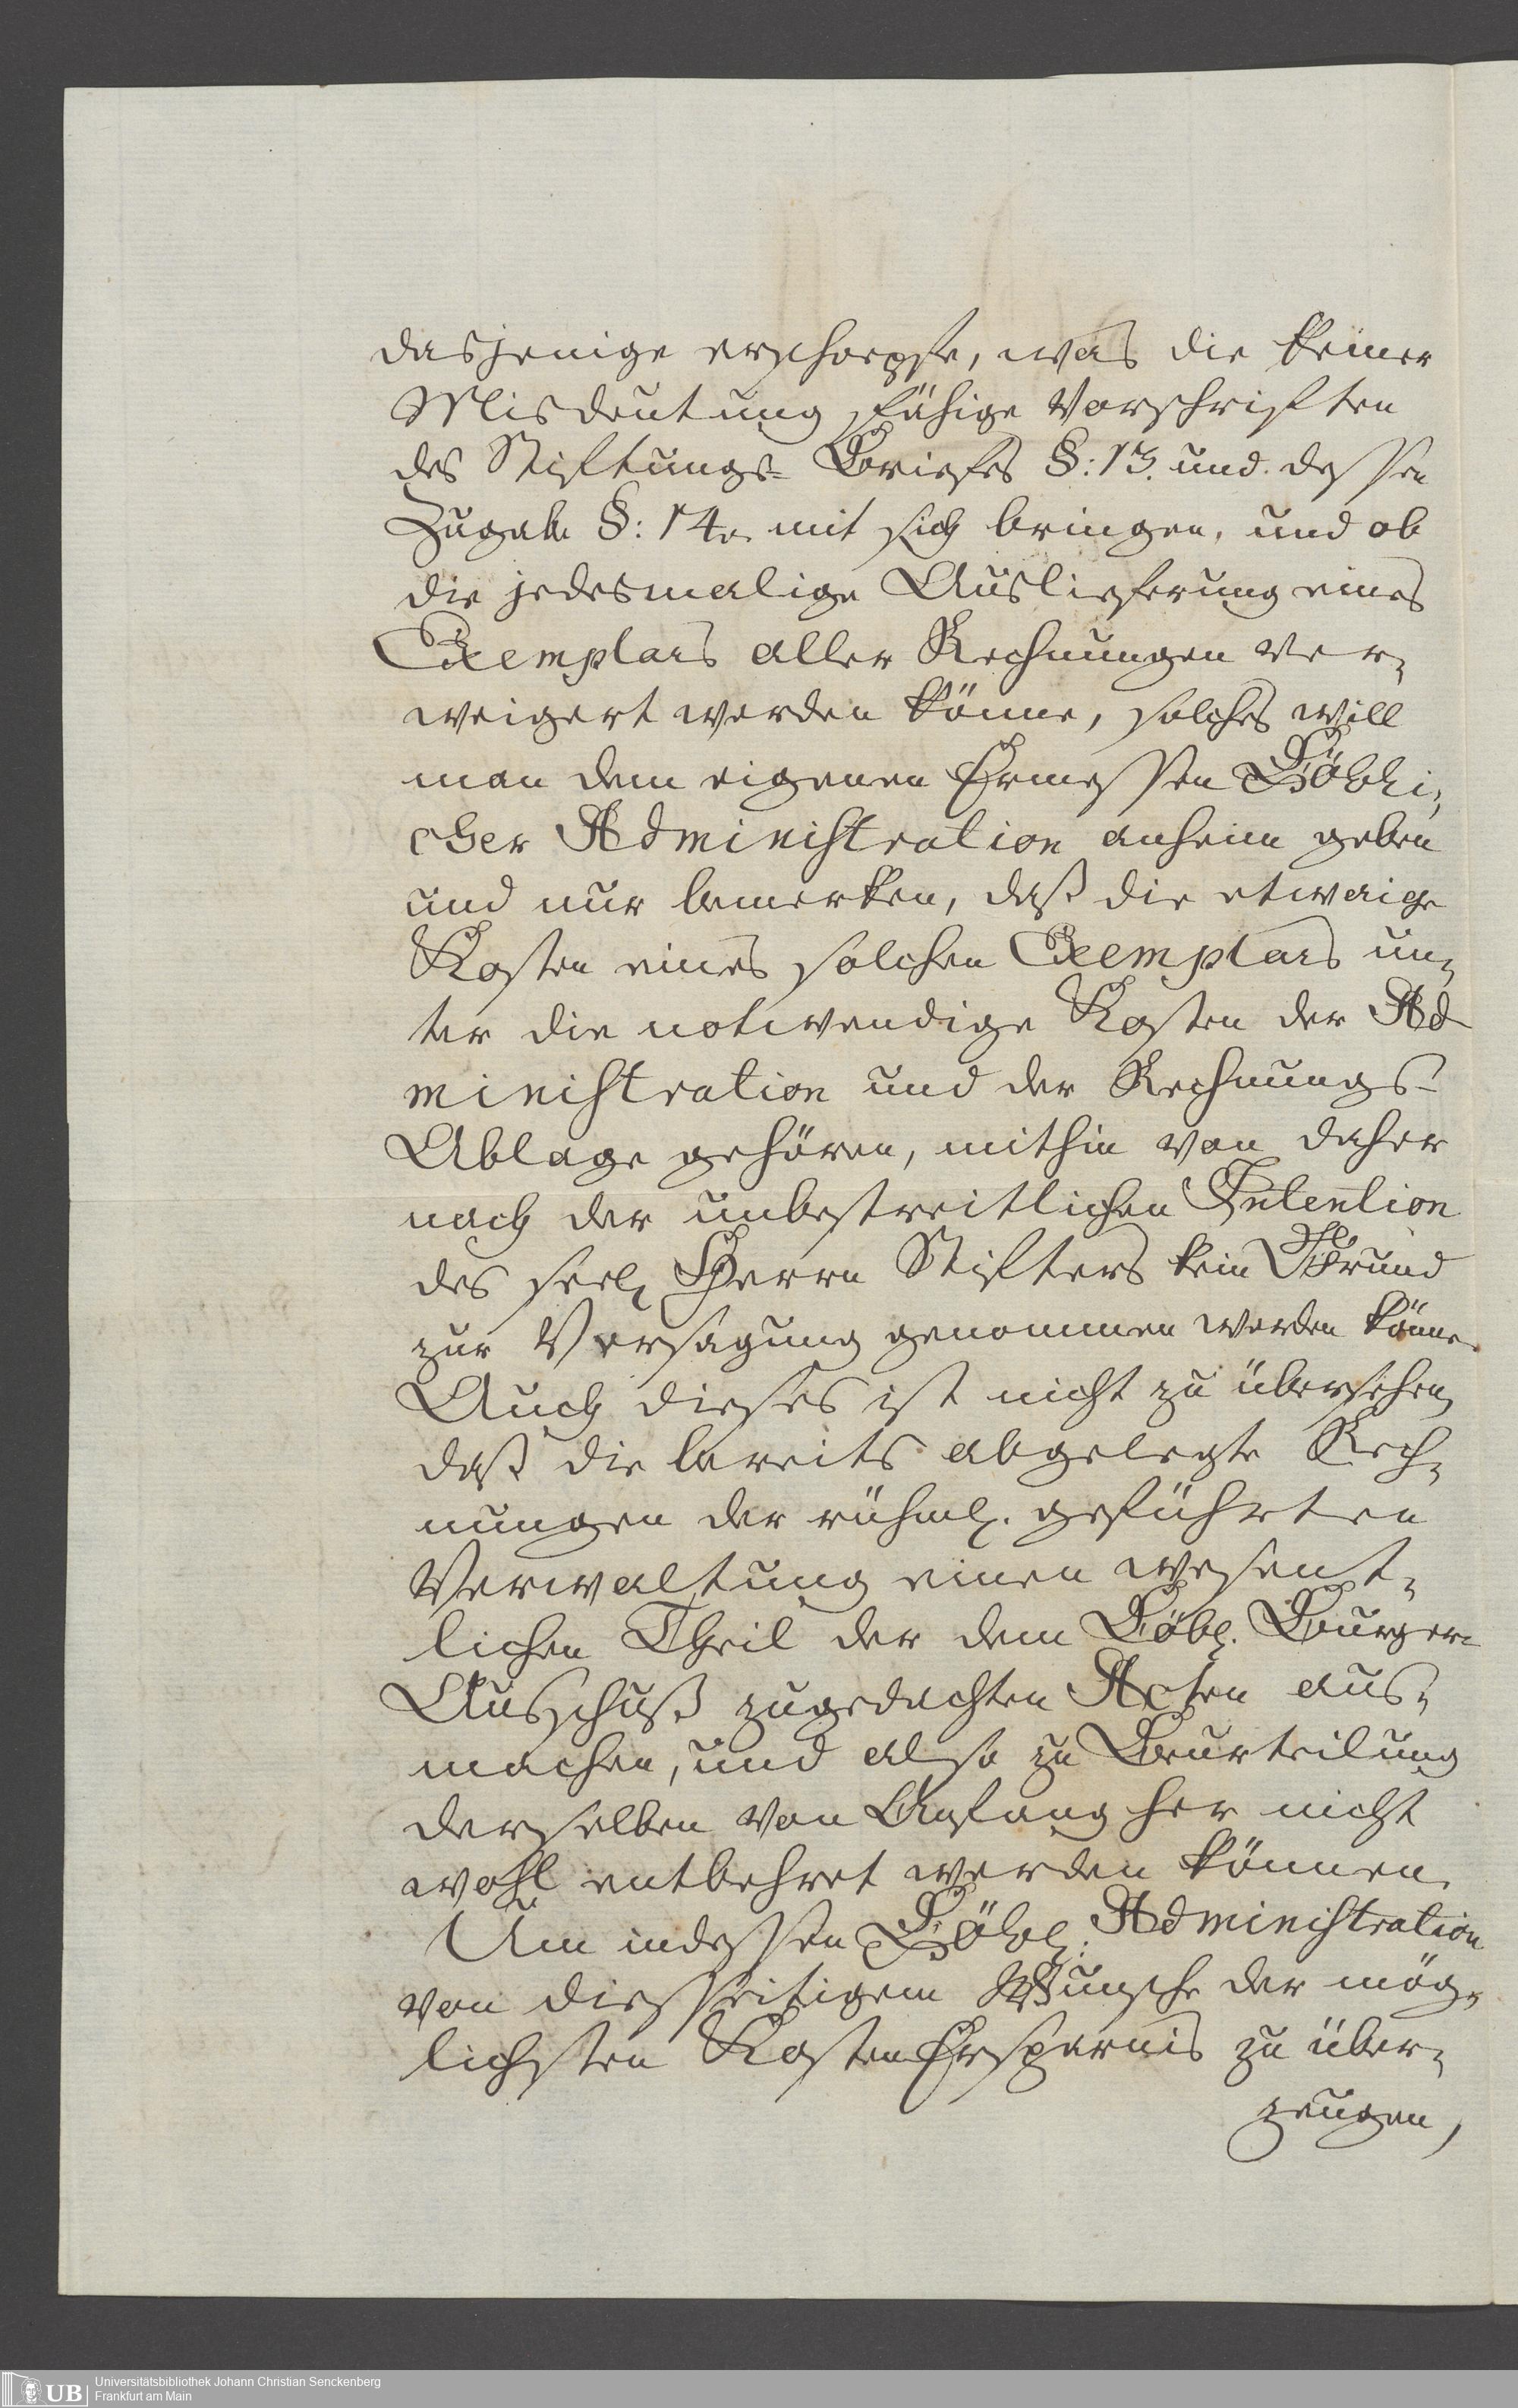 dasjenige erschoepfe, was die keiner
Misdeutung fähige Vorschriften
des Stiftungs- Briefes §: 13. und dessen
Zugabe §: 14. mit sich bringen, und ob
die jedesmalige Auslieferung eines
Exemplars aller Rechnungen ver-
weigert werden könne, solches will
man dem eigenen Ermessen Löbli-
cher Administration anheim geben
und nur bemerken, daß die etwaige
Kosten eines solchen Exemplars un-
ter die notwendige Kosten der Ad-
ministration und der Rechnungs-
Ablage gehören, mithin von daher
nach der unbestreitlichen Intention
des seel. Herrn Stifters kein Grund
zur Versagung genommen werden könne.
Auch dieses ist nicht zu übersehen,
daß die bereits abgelegte Rech-
nungen der rühml. geführten
Verwaltung einen wesent-
lichen Theil der dem Löbl. Burger-
Ausschuß zugedachten Acten aus-
machen, und also zu Beurteilung
derselben von Anfang her nicht
wohl entbehret werden können.
Um indessen Löbl. Administration
von diesseitigem Wunsche der mög-
lichsten Kosten Ersparnis zu über-
zeugen,
Universitätsbibliothek Johann Christian Senckenberg
Frankfurt am Main
UB